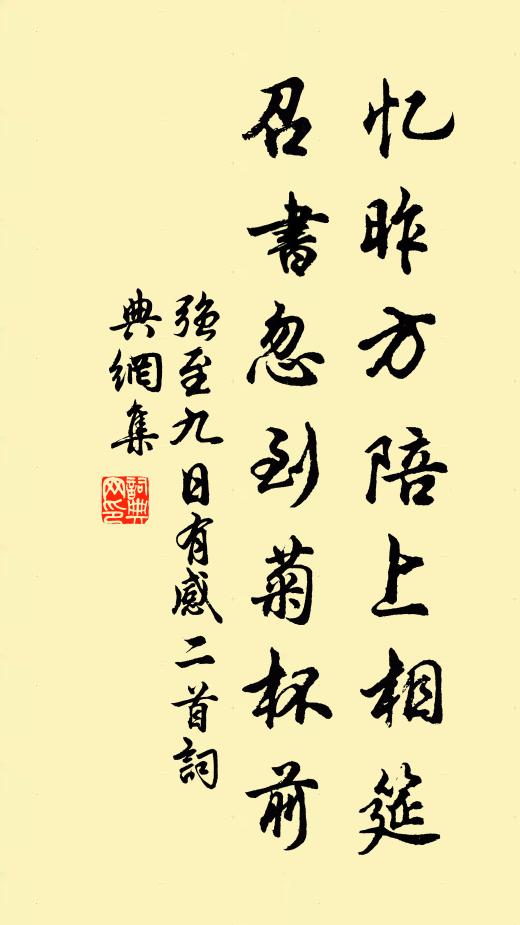 忆昨方陪上相筵
召書忽到菊杯前
强至九日有感二首詞
典網集
詞典网印